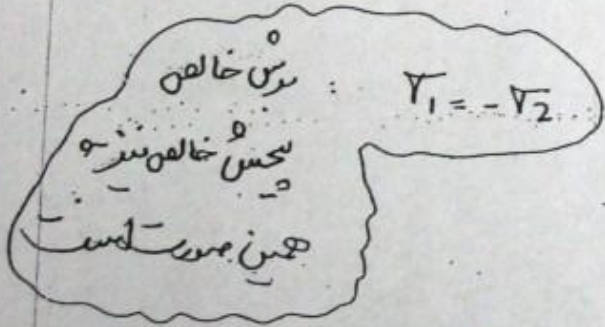 برش خالص : σ₁ = - σ₂
پیچش خالص نیز به
همین صورت است